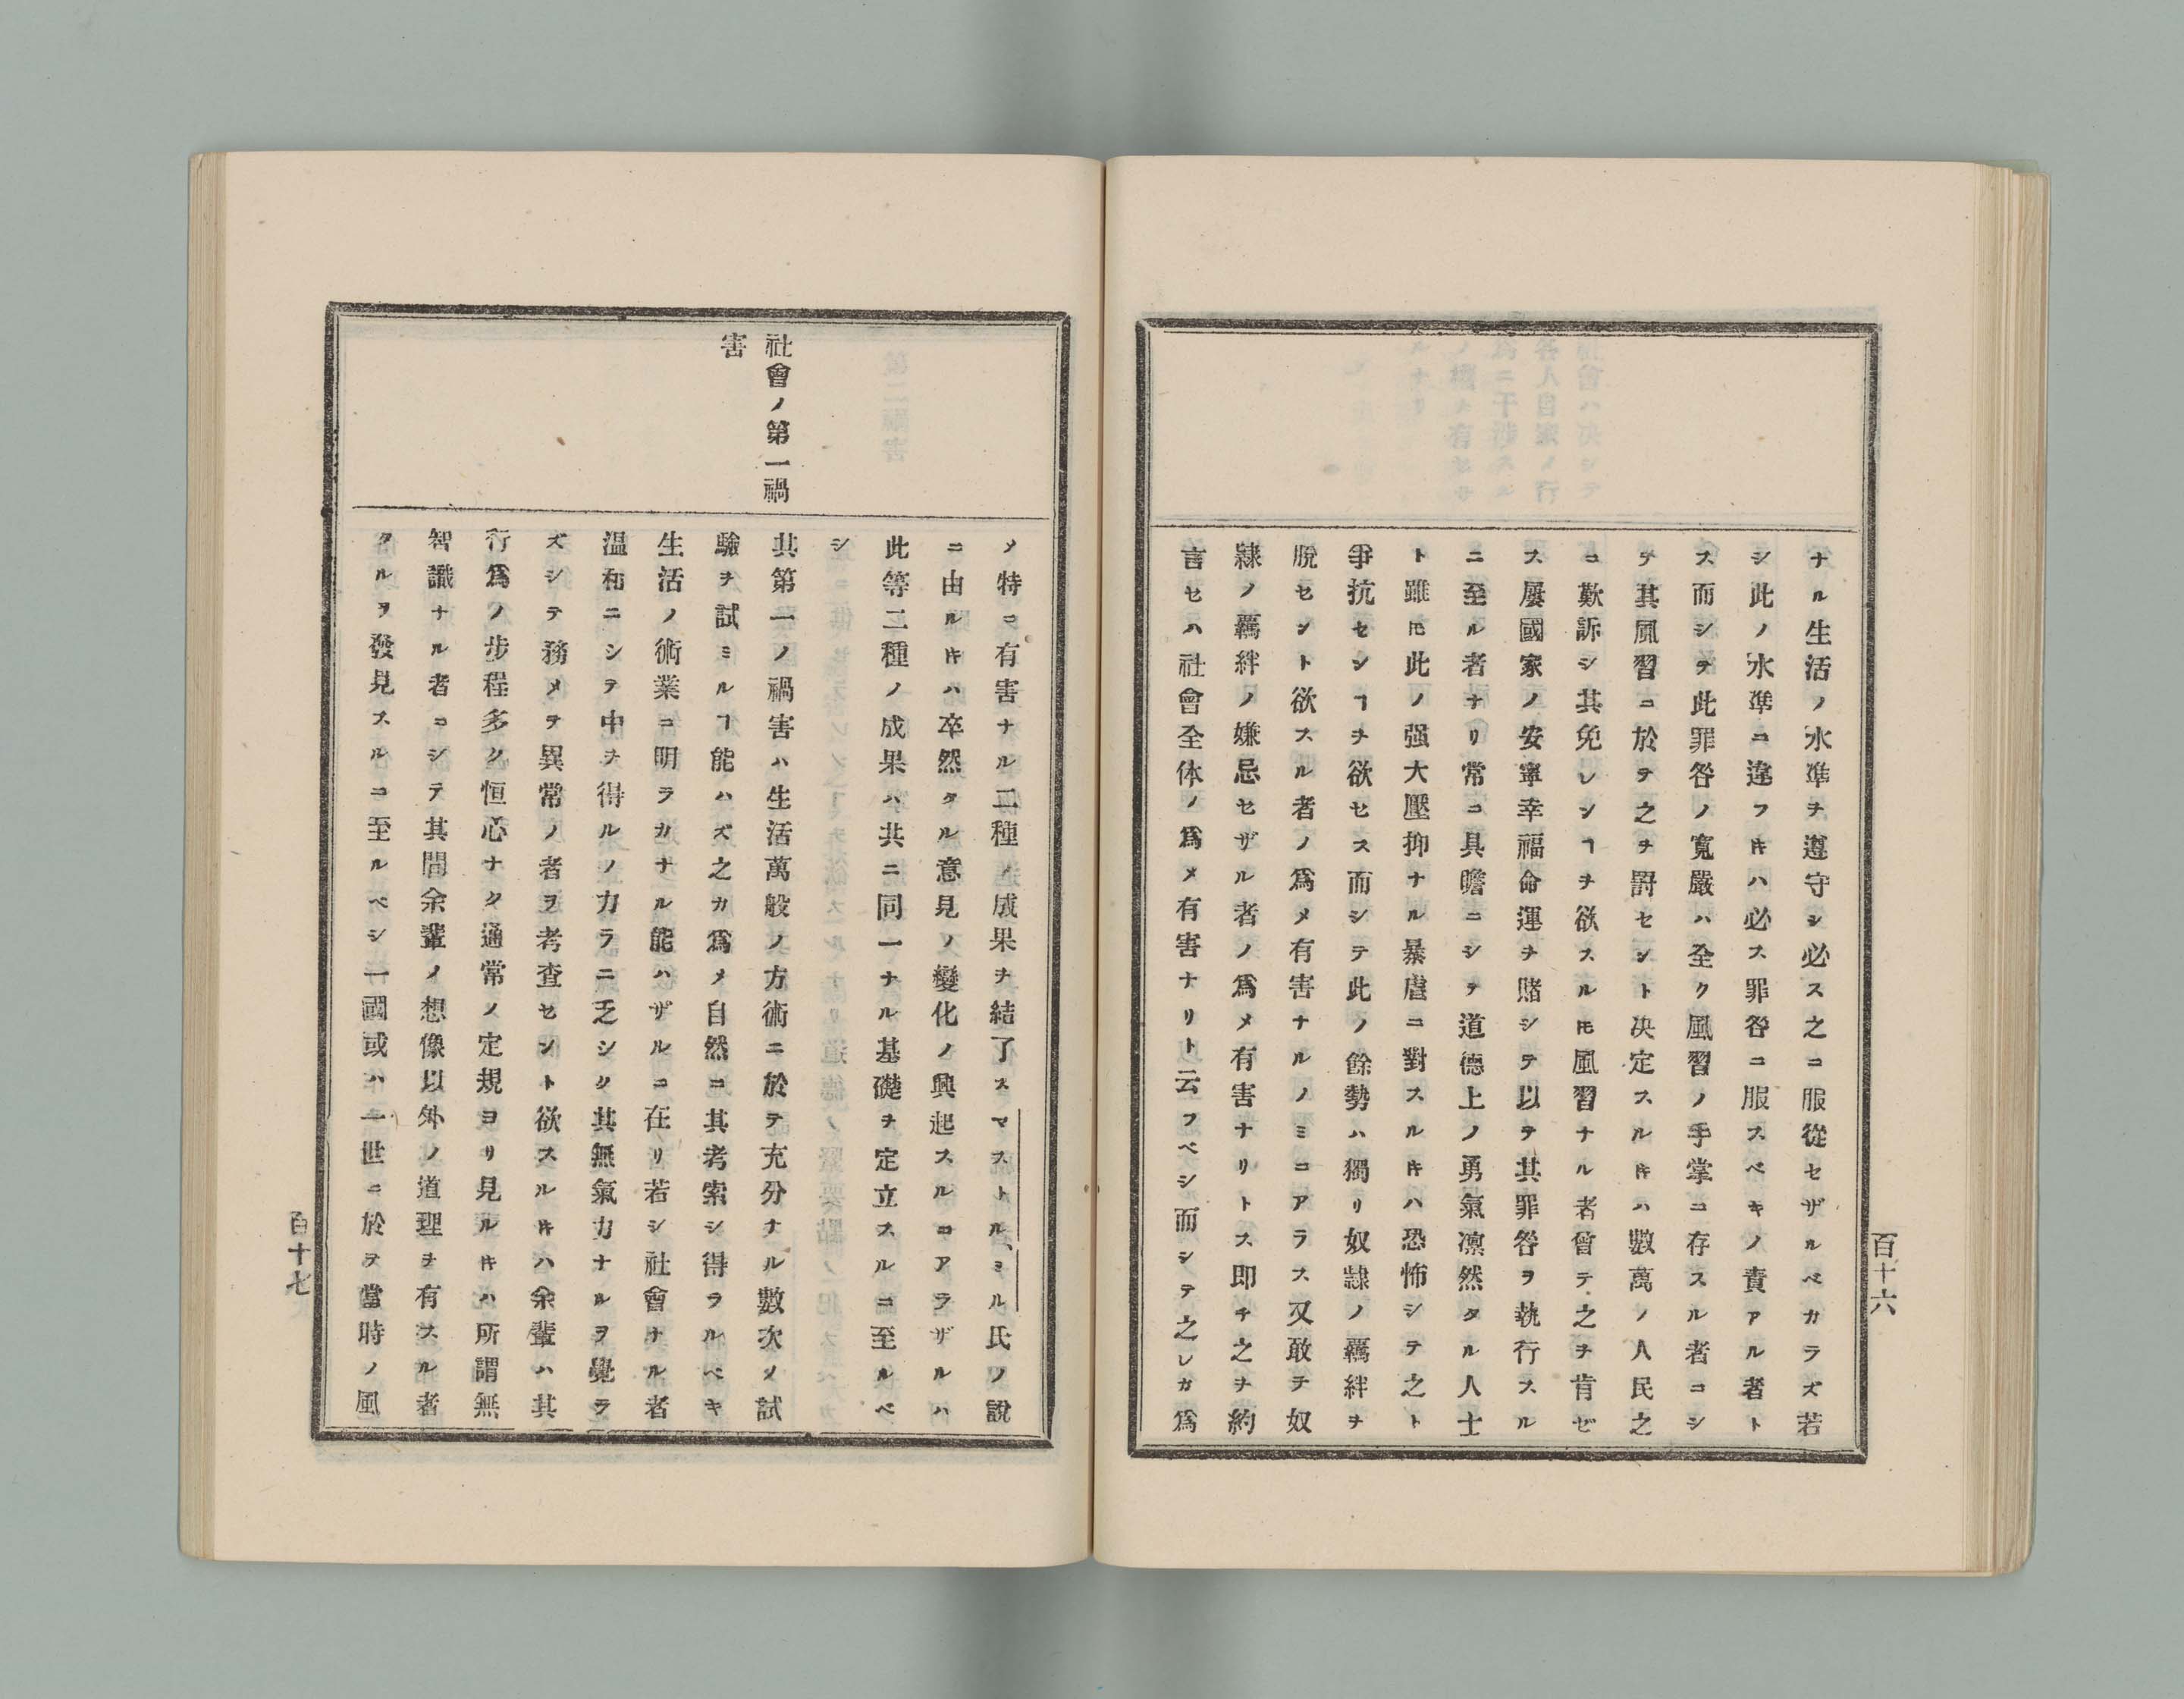 ナル生活ノ水準ヲ遵守シ必ス之ニ服從セザルベカラズ若
シ此ノ水準ニ違フ𪜈ハ必ス罪咎ニ服スベキノ責アル者ト
ス而シテ此罪咎ノ寛嚴ハ全ク風習ノ手掌ニ存スル者ニシ
テ其風習ニ於テ之ヲ罰セント决定スルキハ數萬ノ人民之
ニ歎訴シ其免レンヿヲ欲スルモ風習ナル者曾テ之ヲ肯ゼ
ス屡國家ノ安寧幸福命運ヲ賭シテ以テ其罪咎ヲ執行スル
ニ至ル者ナリ常ニ具瞻ニシテ道德上ノ勇氣凛然タル人士
ト雖𪜈此ノ强大壓抑ナル暴虐ニ對スルキハ恐怖シテ之ト
爭抗センヿヲ欲セス而シテ此ノ餘勢ハ獨リ奴隷ノ羈絆ヲ
脫セント欲スル者ノ爲メ有害ナルノミニアラス又敢テ奴
隷ノ羈絆ノ嫌忌セザル者ノ爲メ有害ナリトス即チ之ヲ約
言セハ社會全体ノ爲メ有害ナリト云フベシ而シテ之レガ爲
百十六
メ特ニ有害ナル二種ノ成果ヲ結了スマストル、ミル氏ノ說
ニ由ルキハ卒然タル意見ノ變化ノ興起スルコアラザルハ
此等二種ノ成果ハ共ニ同一ナル基礎ヲ定立スルニ至ルベ
シ
社會ノ第一禍
害
其第一ノ禍害ハ生活萬般ノ方術ニ於テ充分ナル數次ノ試
驗ヲ試ミルヿ能ハズ之カ爲メ自然ニ其考索シ得ラルベキ
生活ノ術業ニ明ラカナル能ハザルニ在リ若シ社會ナル者
温和ニシテ中ヲ得ルノ力ラニ乏シク其無氣力ナルヲ覺ラ
ズシテ務メテ異常ノ者ヲ考査セント欲スルキハ余輩ハ其
行爲ノ步程多ク恒心ナク通常ノ定規ヨリ見ルキハ所謂無
智識ナル者ニシテ其間余輩ノ想像以外ノ道理ヲ有スル者
タルヲ發見スルニ至ルベシ一國或ハ一世ニ於テ當時ノ風
百十七